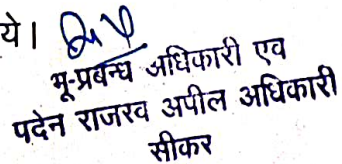 ये।
भू-प्रबन्ध अधिकारी एव
पदेन राजस्व अपील अधिकारी
सीकर